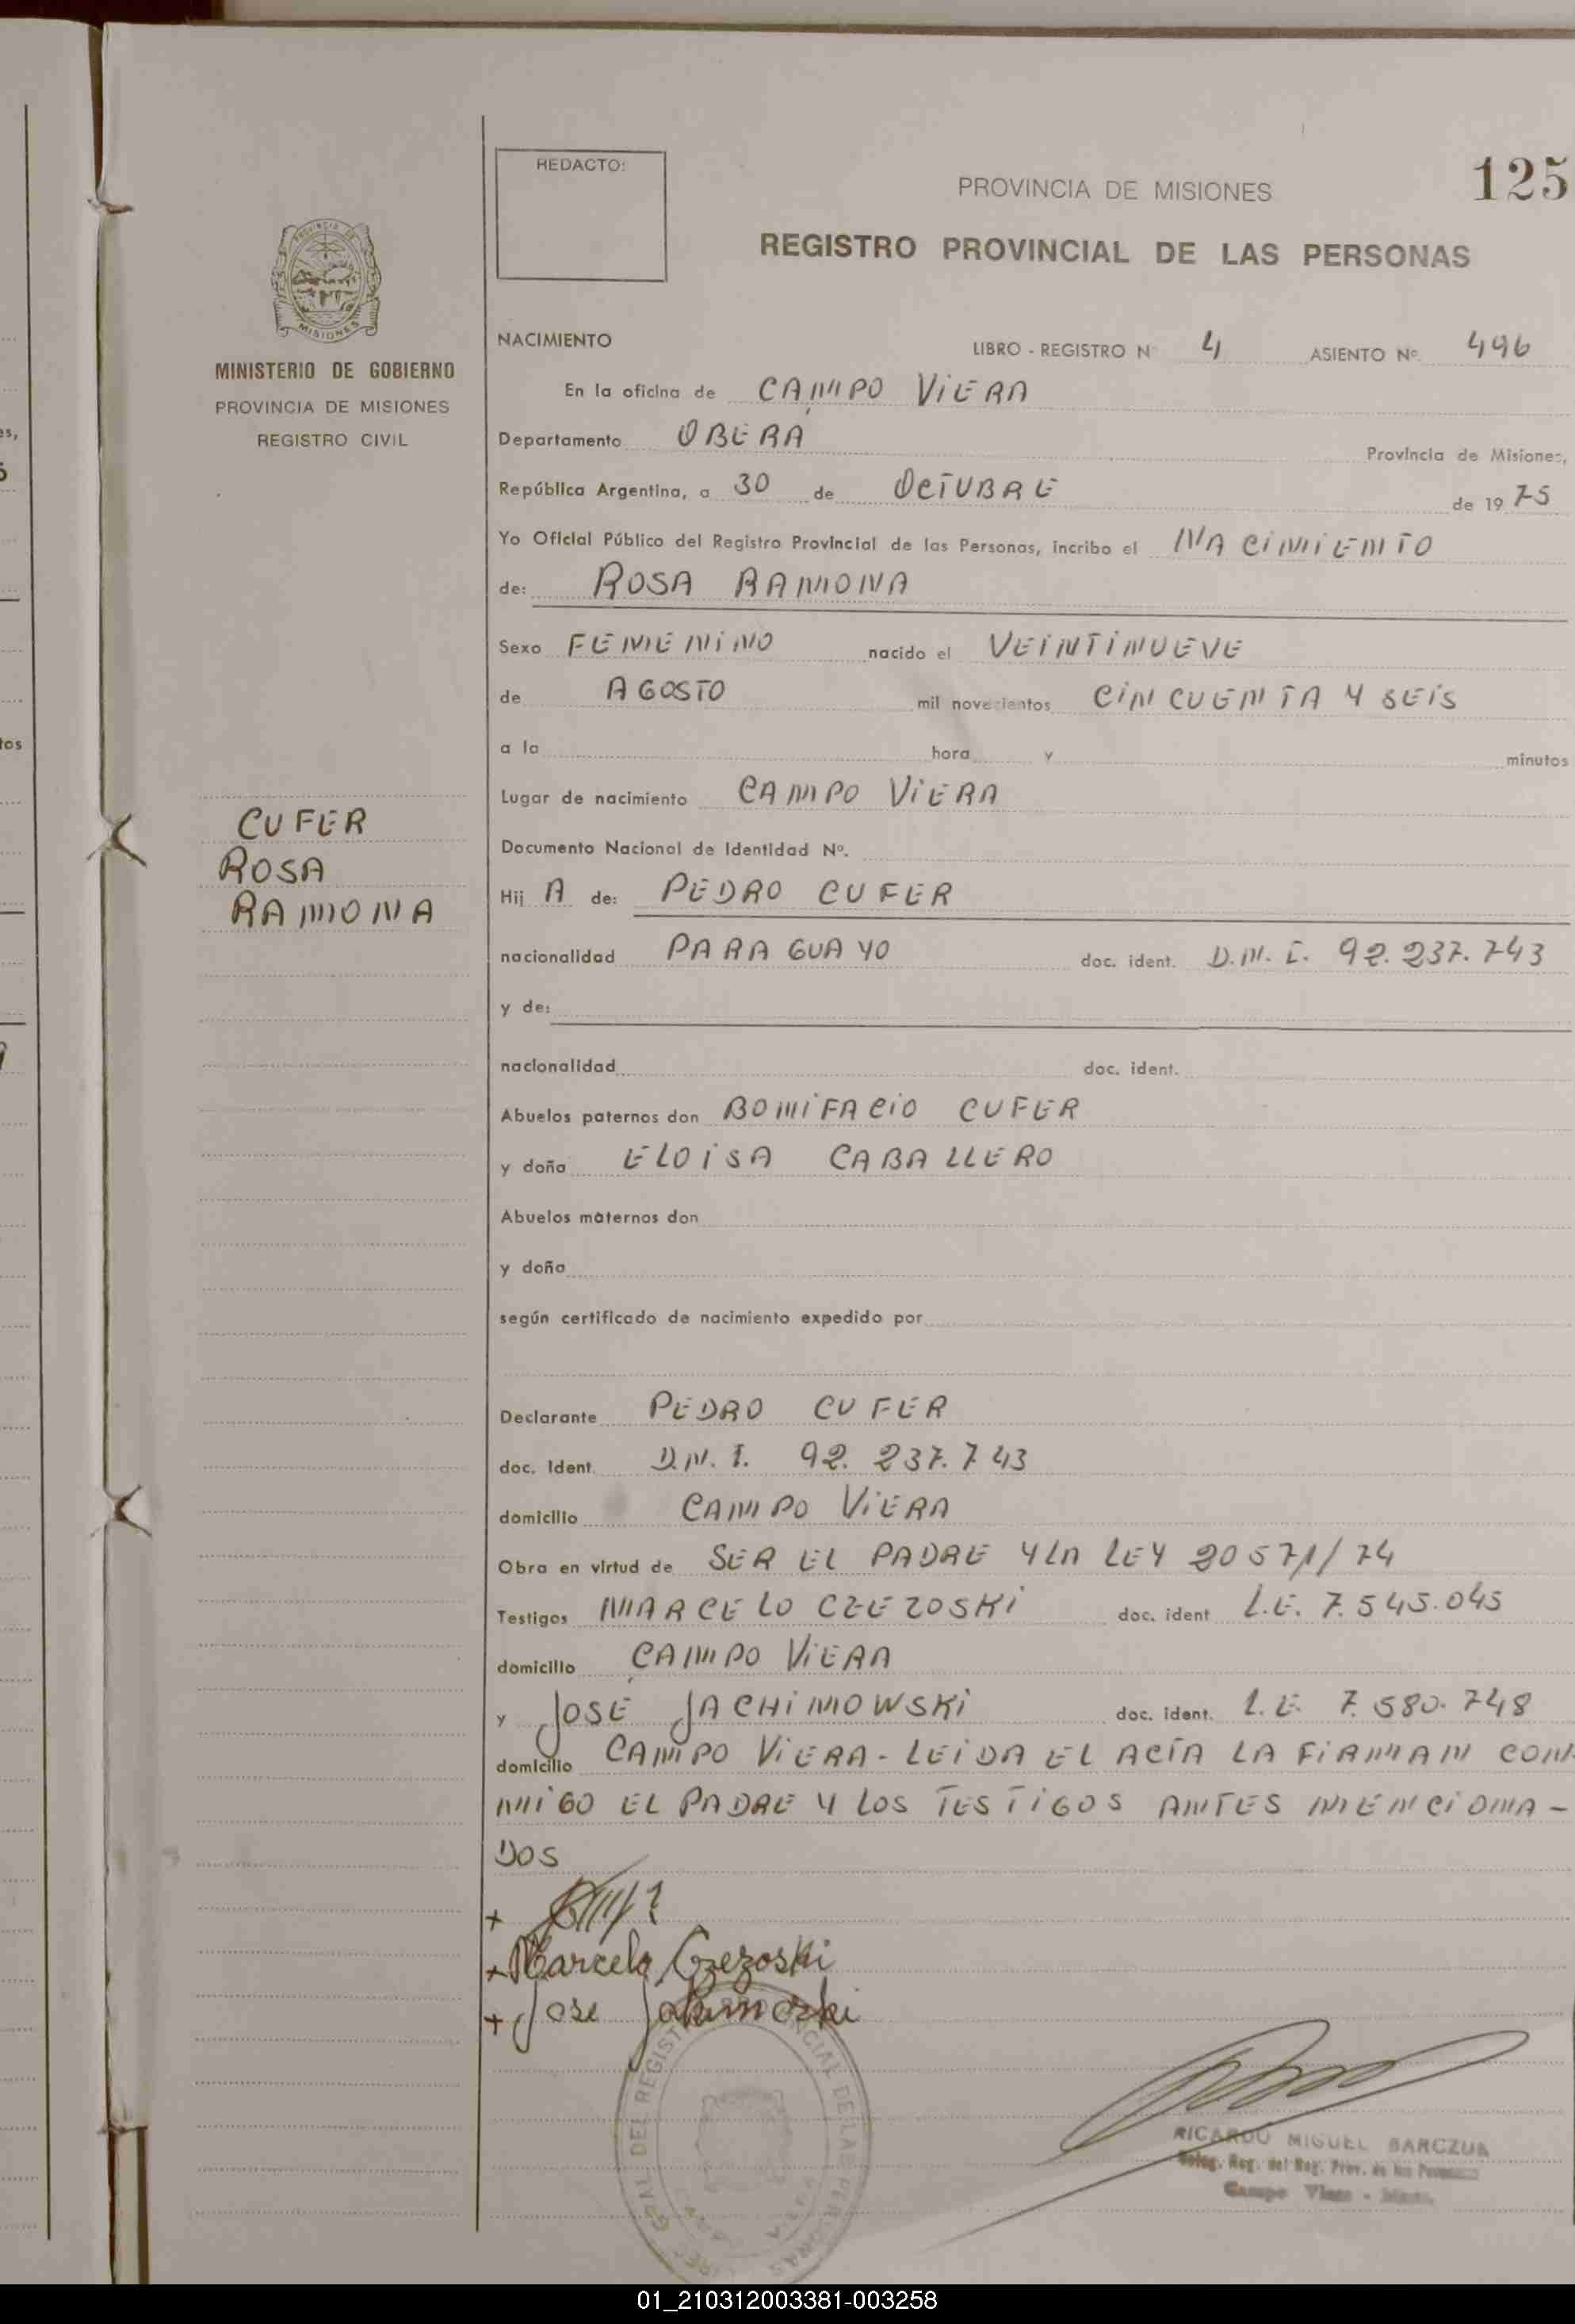 REDACTO:
PROVINCIA DE MISIONES
125
REGISTRO PROVINCIAL DE LAS PERSONAS
MISIONES
MINISTERIO DE GOBIERNO
PROVINCIA DE MISIONES
REGISTRO CIVIL
NACIMIENTO
LIBRO - REGISTRO Nº 4 ASIENTO Nº 496
En la oficina de CAMPO VIERA
Departamento OBERÁ Provincia de Misiones,
República Argentina, a 30 de OCTUBRE de 1975
Yo Oficial Público del Registro Provincial de las Personas, incribo el NACIMIENTO
de: ROSA RAMONA
Sexo FEMENINO nacido el VEINTINUEVE
de AGOSTO mil novecientos CINCUENTA Y SEIS
a la hora y minutos
Lugar de nacimiento CAMPO VIERA
CUFER
ROSA
RAMONA
Documento Nacional de Identidad Nº.
Hij A de: PEDRO CUFER
nacionalidad PARAGUAYO doc. ident. D.N.I. 92.237.743
y de:
nacionalidad doc. ident.
Abuelos paternos don BONIFACIO CUFER
y doña ELOISA CABALLERO
Abuelos maternos don
y doña
según certificado de nacimiento expedido por
Declarante PEDRO CUFER
doc. Ident. D.N.I. 92.237.743
domicilio CAMPO VIERA
Obra en virtud de SER EL PADRE Y LA LEY 20571/74
Testigos MARCELO CZEZOSKI doc. ident L.E. 7.545.045
domicilio CAMPO VIERA
y JOSÉ JACHIMOWSKI doc. ident. L.E. 7.580.748
domicilio CAMPO VIERA - LEIDA EL ACTA LA FIRMAN CON-
MIGO EL PADRE Y LOS TESTIGOS ANTES MENCIONA-
DOS
+
+ Marcelo Czezoski
+ Jose
RICARDO MIGUEL BARCZUK
Campo Viera - Mnes.
01_210312003381-003258